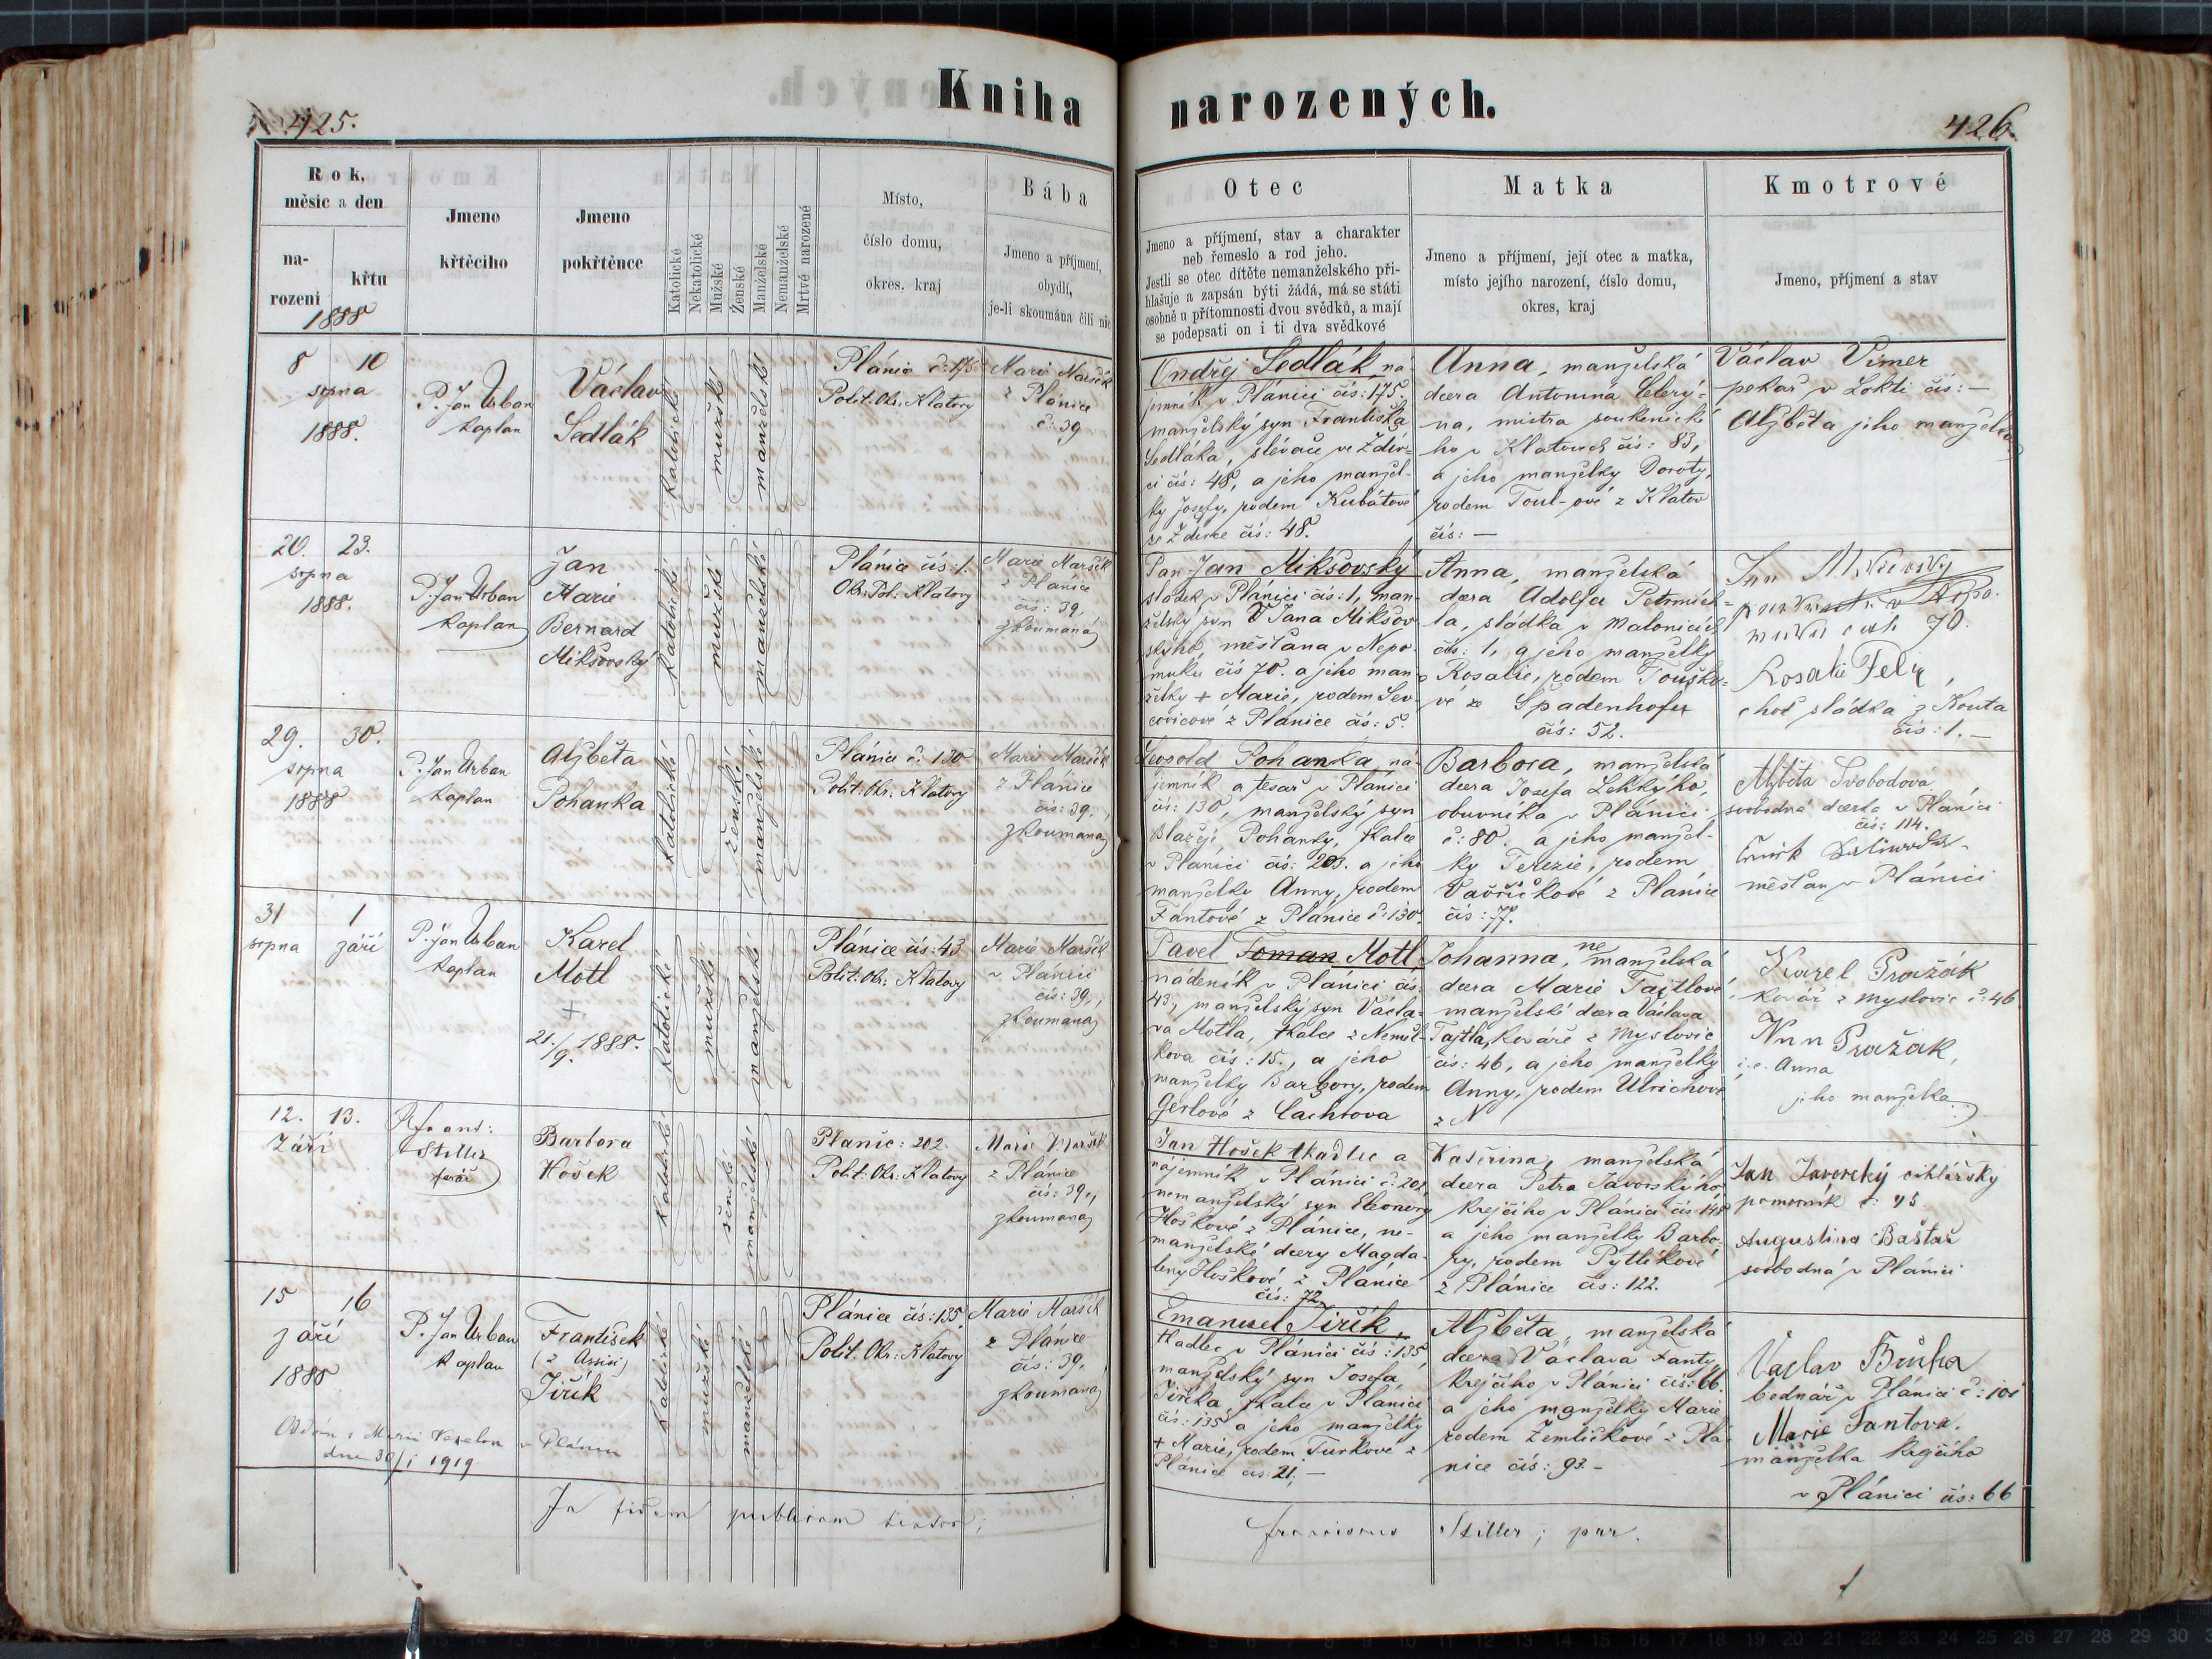 Kniha narozených.
425.
426.
Rok, měsíc a den
na-
rození
křtu
1888
Jmeno
křtěcího
Jmeno
pokřtěnce
Katolické
Nekatolické
Mužské
Ženské
Manželské
Nemanželské
Mrtvé narozené
Místo,
číslo domu,
okres, kraj
Bába
Jmeno a příjmení,
obydlí,
je-li skoumána čili nic
Otec
Jmeno a příjmení, stav a charakter
neb řemeslo a rod jeho.
Jestli se otec dítěte nemanželského při-
hlašuje a zapsán býti žádá, má se státi
osobně u přítomnosti dvou svědků, a mají
se podepsati on i ti dva svědkové
Matka
Jmeno a příjmení, její otec a matka,
místo jejího narození, číslo domu,
okres, kraj
Kmotrové
Jmeno, příjmení a stav
8 10
srpna
1888.
P. Jan Urban
kaplan
Václav
Sedlák
katolické
mužské
manželské
Plánice č: 175
Polit: Okr: Klatovy
Marie Maršík
z Plánice
č: 39
Ondřej Sedlák, ná
jemník v Plánici čís: 175.
manželský syn Františka
Sedláka, slévače ve Zdír-
ci čís: 48, a jeho manžel-
ky Josefy, rodem Kubátové
ze Zdírce čís: 48.
Anna, manželská
dcera Antonína Celerý-
na, mistra soukenické
ho v Klatovech čís: 83,
a jeho manželky Doroty,
rodem Toul-ové z Klatov
čís: —
Václav Vimer
pekař v Lokti čís: —
Alžběta jeho manželka
20. 23.
srpna
1888.
P. Jan Urban
kaplan
Jan
Marie
Bernard
Mikšovský
katolické
mužské
manželské
Plánice čís: 1.
Okr: Pol: Klatovy
Marie Maršík
z Plánice
čís: 39,
zkoumaná
Pan Jan Mikšovský
sládek v Plánici čís: 1, man-
želský syn Jana Mikšov
ského, měšťana v Nepo-
muku čís 70. a jeho man
želky + Marie, rodem Šev-
covicové z Plánice čís: 5.
Anna, manželská
dcera Adolfa Petrmich-
la, sládka v Malonicích
čís: 1, a jeho manželky
Rosalie, rodem Touško-
vé ze Spadenhofu
čís: 52.
Jan Mikšovský
v Nepo.
muku 70.
Rosalie Felix,
choť sládka z Kouta
čís: 1. —
29. 30.
srpna
1888
P. Jan Urban
kaplan
Alžběta
Pohanka
katolické
ženské
manželské
Plánice č: 130
Polit: Okr: Klatovy
Marie Maršík
z Plánice
čís: 39,
zkoumaná
Leopold Pohanka, ná-
jemník a tesař v Plánici
čís: 130, manželský syn
Blažeje Pohanky, tkalce
v Plánici čís: 203. a jeho
manželky Anny, rodem
Fantové z Plánice č: 130.
Barbora, manželská
dcera Josefa Lehkýho,
obuvníka v Plánici
č: 80. a jeho manžel-
ky Terezie, rodem
Vavřičkové z Plánice
čís: 77.
Alžběta Svobodová
svobodná dcera v Plánici
čís: 114.
měšťan v Plánici
31 1
srpna září
P. Jan Urban
kaplan
Karel
Motl
+
21./9. 1888.
katolické
mužské
manželské
Plánice čís: 43
Polit: Okr: Klatovy
Marie Maršík
v Plánici
čís: 39,
zkoumaná
Pavel Toman Motl,
nádeník v Plánici čís:
43, manželský syn Václa-
va Motla, tkalce z Nemil-
kova čís: 15., a jeho
manželky Barbory, rodem
Gerlové z Čachrova
Johanna, nemanželská
dcera Marie Tajtlové,
manželské dcera Václava
Tajtla, kováře z Myslovic
čís: 46, a jeho manželky
Anny, rodem Ulrichové
z N
Karel Pražák
kovář z Myslovic č: 46
Ann Pražák,
i. e. Anna
jeho manželka
12. 13.
Září
Stiller
farář
Barbora
Hošek
katolické
ženské
manželské
Plánic: 202.
Polit: Okr: Klatovy
Marie Maršík
z Plánice
čís: 39,
zkoumaná
Jan Hošek tkadlec a
nájemník v Plánici č: 202
nemanželský syn Eleonory
Hoškové z Plánice, ne-
manželské dcery Magda-
leny Hoškové z Plánice
čís: 72
Kateřina, manželská
dcera Petra Javorskýho
krejčího v Plánici čís 148
a jeho manželky Barbo-
ry, rodem Pytlíkové
z Plánice čís: 122.
Jan Javorský cihlářský
pomocník č: 45
Augustina Baštař
svobodná v Plánici
15 16
září
1888
P. Jan Urban
kaplan
František
(z Assisi)
Jiřík
katolické
mužské
manželské
Plánice čís: 135.
Polit. Okr: Klatovy
Marie Maršík
z Plánice
čís: 39,
zkoumaná
Emanuel Jiřík,
tkadlec v Plánici čís: 135
manželský syn Josefa
Jiříka, tkalce v Plánici
čís: 135 a jeho manželky
+ Marie, rodem Turkové z
Plánice čís: 21. —
Alžběta, manželská
dcera Václava Fanty,
krejčího v Plánici čís: 66.
a jeho manželky Marie
rodem Žemličkové z Plá-
nice čís: 93. —
Václav Brůha
bednář v Plánici č: 101
Marie Fantova.
manželka krejčího
v Plánici čís: 66
Oddán s Marií v Plánici
dne 30/1 1919
In fidem publicam testor;
Franciscus Stiller, par.